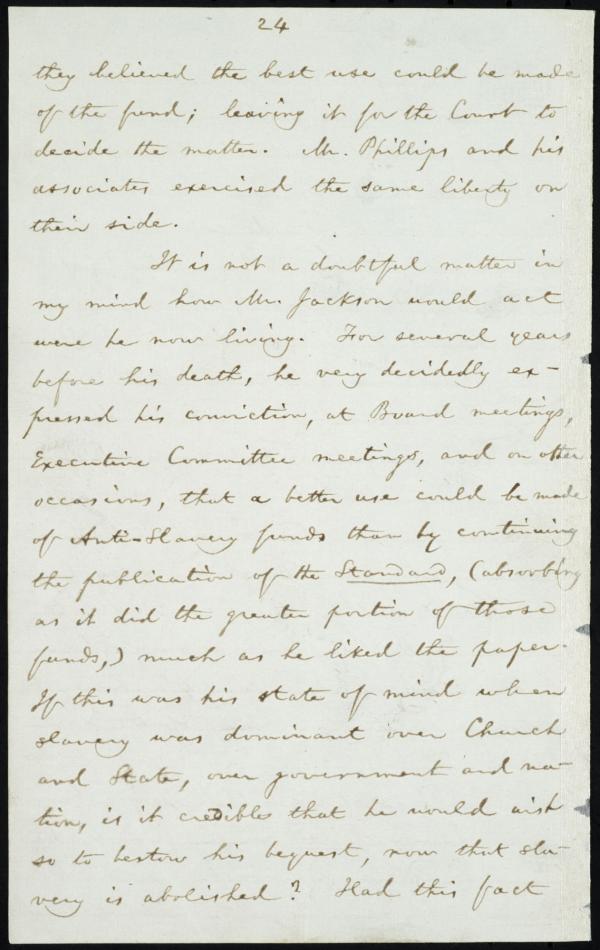 24
they believed the best use could be made
of the fund; leaving it for the Court to
decide the matter. Mr. Phillips and his
associates exercised the same liberty on
their side.
It is not a doubtful matter in
my mind how Mr. Jackson would act
were he now living. For several years
before his death, he very decidedly ex-
pressed his conviction, at Board meetings,
Executive Committee meetings, and on other
occasions, that a better use could be made
of Anti-Slavery funds than by continuing
the publication of the Standard, (absorbing
as it did the greater portion of those
funds,) much as he liked the paper.
If this was his state of mind when
slavery was dominant over Church
and State, over government and na-
tion, is it credible that he would wish
so to bestow his bequest, now that sla-
very is abolished? Had this fact